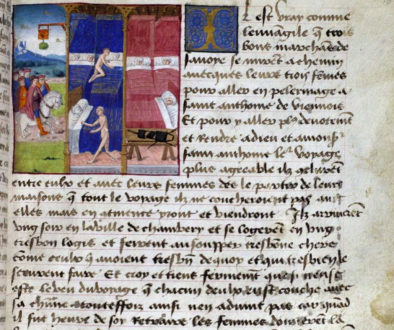 Il est vray comme
leuuangile que trois
bons marchans de
sauoye se mirent a chemin
auecques leurs trois femes
pour aller en pelerinage a
saint anthoine de viennois
Et pour y aller plus deuotement
et rendre a dieu et a monsr
saint anthoine leur voyage
plus agreable ilz
entre eulx et auec leurs femmes des le partir de leurs
maisons que tout le voyage ilz ne coucheroient pas auec
elles mais en continence yront et viendront Ilz arriuerent
ung soir en la ville de chambery et se logerent en ung
tresbon logis et firent au soupper tresbonne chere
come ceulx qui auoient tresbien de quoy et qui tresbien le
sceurent faire Et croy et tiens fermement que si neust
este le du voyage que chacun deulx eust couche auec
sa chacune Toutesfoiz ainsi nen aduint pas car quand
il fut heure de soy retraire les femmes donnerent la